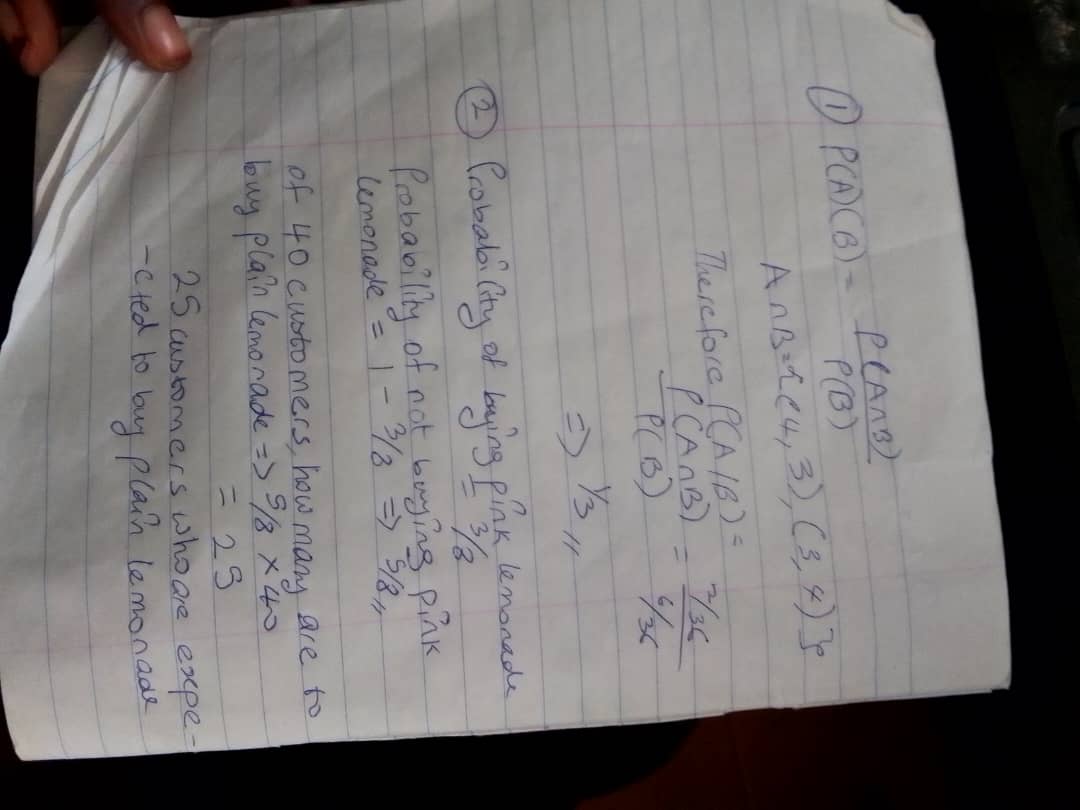 ① P(A)(B) = P(A∩B)
P(B)
A∩B = {(4,3), (3,4)}
Therefore P(A/B) =
P(A∩B) = 2/36
P(B) 6/36
=> 1/3 ,,
② Probability of buying pink lemonade
= 3/8
Probability of not buying pink
lemonade = 1 - 3/8 => 5/8,,
of 40 customers, how many are to
buy plain lemonade => 5/8 × 40
= 25
25 customers who are expe-
-cted to buy plain lemonade